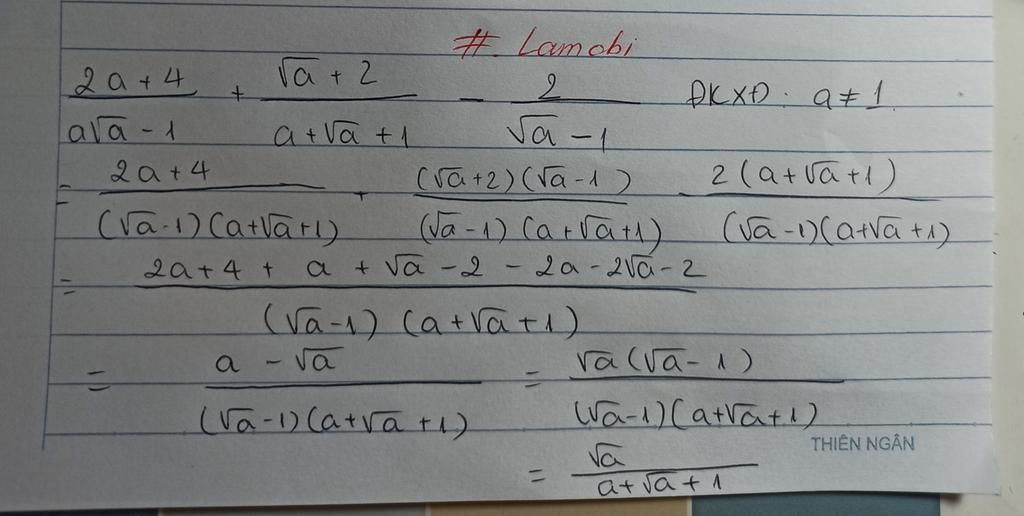 # Lamobi
2a+4 / a√a - 1 + √a + 2 / a+√a +1 - 2 / √a - 1 ĐKXĐ: a ≠ 1.
= 2a+4 / (√a-1)(a+√a+1) + (√a+2)(√a-1) / (√a-1)(a+√a+1) - 2(a+√a+1) / (√a-1)(a+√a+1)
= 2a+4 + a + √a - 2 - 2a - 2√a - 2 / (√a-1)(a+√a+1)
= a - √a / (√a-1)(a+√a+1) = √a(√a-1) / (√a-1)(a+√a+1)
THIÊN NGÂN
= √a / a+√a+1